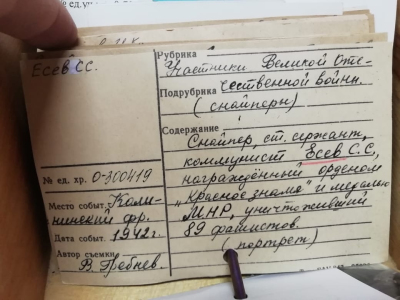 Есев СС.
№ ед. хр. 0-300419
Место событ. Кали-
нинский фр.
Дата событ. 1942г.
Автор съемки
В. Гребнев.
Рубрика
Участники Великой Оте-
Подрубрика чественной войны.
(снайперы)
Содержание
Снайпер, ст. сержант,
коммунист Есев С.С.,
награждённый орденом
„Красное знамя" и медалью
МНР, уничтоживший
89 фашистов.
(портрет)